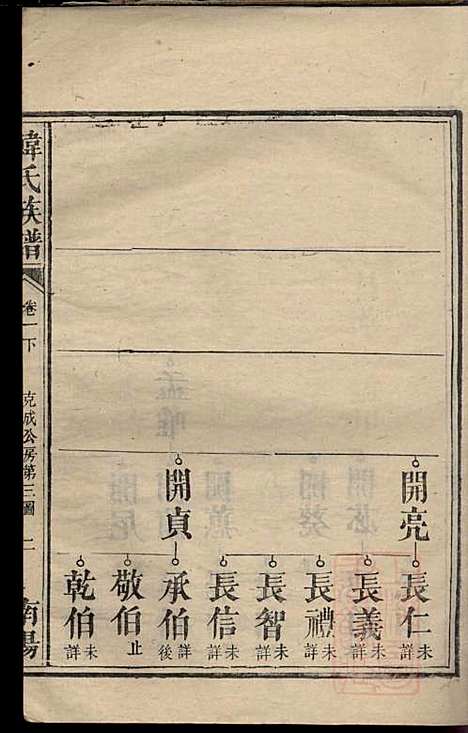 開亮
長仁 未詳
長義 未詳
長禮 未詳
長智 未詳
長信 未詳
開貞
承伯 詳後
敬伯 止
乾伯 未詳
韓氏族譜
卷一下
克成公房第三圖
二
南陽